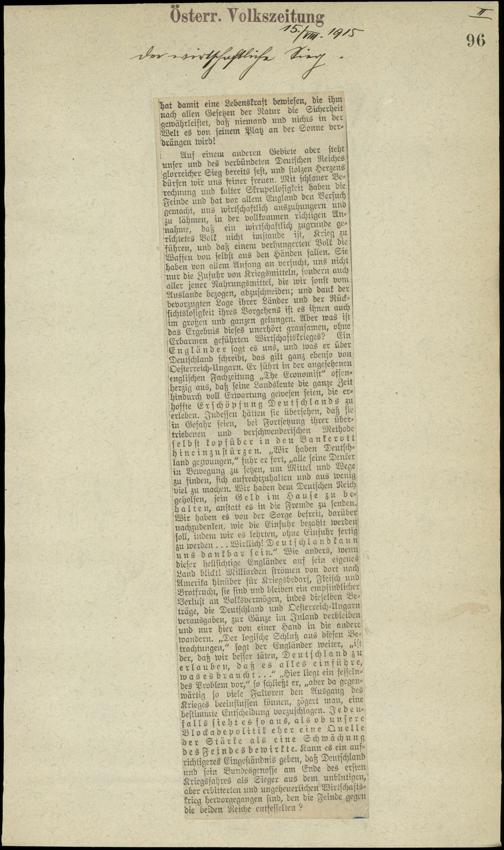 Österr. Volkszeitung
II
15/VIII. 1915
96
Der wirtschaftliche Sieg.
hat damit eine Lebenskraft bewiesen, die ihm
nach allen Gesetzen der Natur die Sicherheit
gewährleistet, daß niemand und nichts in der
Welt es von seinem Platz an der Sonne ver-
drängen wird!
Auf einem anderen Gebiete aber steht
unser und des verbündeten Deutschen Reiches
glorreicher Sieg bereits fest, und stolzen Herzens
dürfen wir uns seiner freuen. Mit schlauer Be-
rechnung und kalter Skrupellosigkeit haben die
Feinde und hat vor allem England den Versuch
gemacht, uns wirtschaftlich auszuhungern und
zu lähmen, in der vollkommen richtigen An-
nahme, daß ein wirtschaftlich zugrunde ge-
richtetes Volk nicht imstande ist, Krieg zu
führen, und daß einem verhungerten Volk die
Waffen von selbst aus den Händen fallen. Sie
haben von allem Anfang an versucht, uns nicht
nur die Zufuhr von Kriegsmitteln, sondern auch
aller jener Nahrungsmittel, die wir sonst vom
Auslande bezogen, abzuschneiden; und dank der
bevorzugten Lage ihrer Länder und der Rück-
sichtslosigkeit ihres Vorgehens ist es ihnen auch
im großen und ganzen gelungen. Aber was ist
das Ergebnis dieses unerhört grausamen, ohne
Erbarmen geführten Wirtschaftskrieges? Ein
Engländer sagt es uns, und was er über
Deutschland schreibt, das gilt ganz ebenso von
Oesterreich-Ungarn. Er führt in der angesehenen
englischen Fachzeitung „The Economist“ offen-
herzig aus, daß seine Landsleute die ganze Zeit
hindurch voll Erwartung gewesen seien, die er-
hoffte Erschöpfung Deutschlands zu
erleben. Indessen hätten sie übersehen, daß sie
in Gefahr seien, bei Fortsetzung ihrer über-
triebenen und verschwenderischen Methode
selbst kopfüber in den Bankerott
hineinzustürzen. „Wir haben Deutsch-
land gezwungen,“ fuhr er fort, „alle seine Denker
in Bewegung zu setzen, um Mittel und Wege
zu finden, sich aufrechtzuhalten und aus wenig
viel zu machen. Wir haben dem Deutschen Reich
geholfen, sein Geld im Hause zu be-
halten, anstatt es in die Fremde zu senden.
Wir haben es von der Sorge befreit, darüber
nachzudenken, wie die Einfuhr bezahlt werden
soll, indem wir es lehrten, ohne Einfuhr fertig
zu werden . . . Wirklich! Deutschland kann
uns dankbar sein.“ Wie anders, wenn
dieser hellsichtige Engländer auf sein eigenes
Land blickt! Milliarden strömen von dort nach
Amerika hinüber für Kriegsbedarf, Fleisch und
Brotfrucht, sie sind und bleiben ein empfindlicher
Verlust an Volksvermögen, indes dieselben Be-
träge, die Deutschland und Oesterreich-Ungarn
verausgaben, zur Gänze im Inland verbleiben
und nur hier von einer Hand in die andere
wandern. „Der logische Schluß aus diesen Be-
trachtungen,“ sagt der Engländer weiter, „ist
der, daß wir besser täten, Deutschland zu
erlauben, daß es alles einführe,
was es braucht . . .“ „Hier liegt ein fesseln-
des Problem vor,“ so schließt er, „aber da gegen-
wärtig so viele Faktoren den Ausgang des
Krieges beeinflussen können, zögert man, eine
bestimmte Entscheidung vorzuschlagen. Jeden-
falls sieht es so aus, als ob unsere
Blockadepolitik eher eine Quelle
der Stärke als eine Schwächung
des Feindes bewirkte. Kann es ein auf-
richtigeres Eingeständnis geben, daß Deutschland
und sein Bundesgenosse am Ende des ersten
Kriegsjahres als Sieger aus dem unblutigen,
aber erbitterten und ungeheuerlichen Wirtschafts-
krieg hervorgegangen sind, den die Feinde gegen
die beiden Reiche entfesselten?